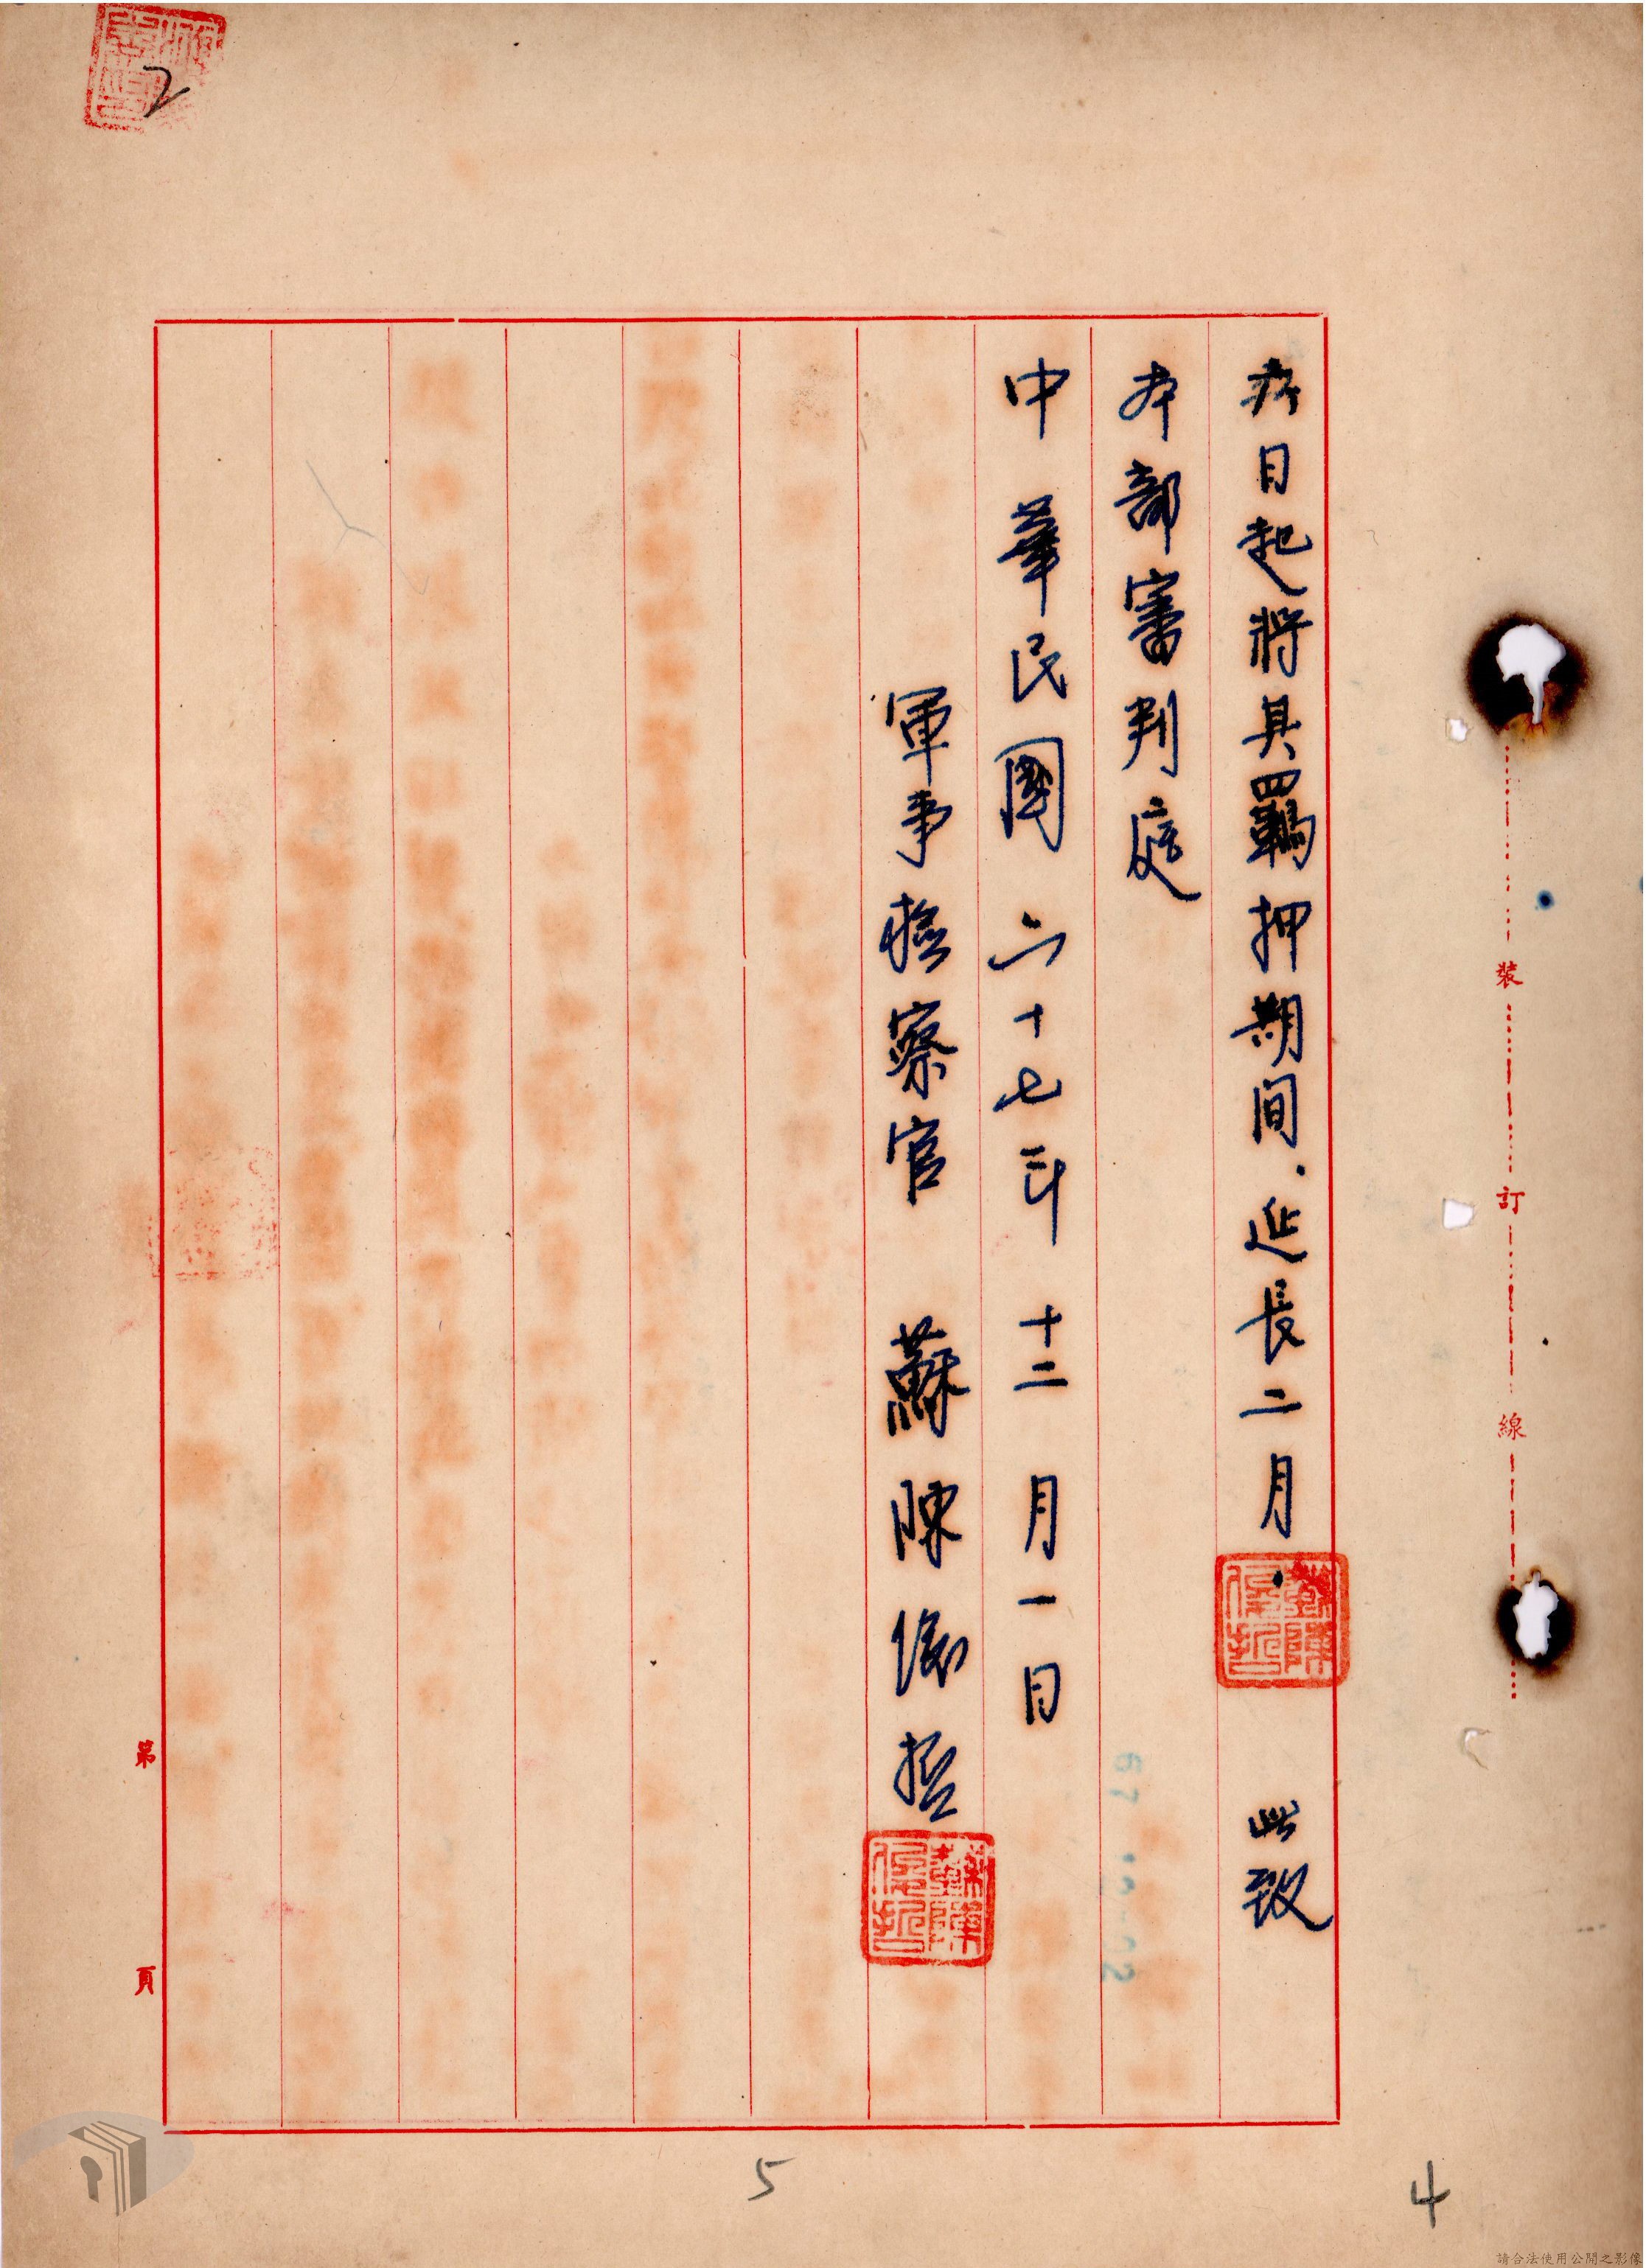 2
裝訂線
日起將其羈押期間.延長二月. 此致
本部審判庭
中華民國六十七年十二月一日
軍事檢察官 蘇陳 哲
第 頁
5
4
請合法使用公開之影像